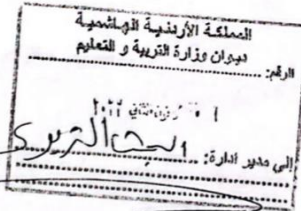 المملكة الأردنية الهاشمية
ديوان وزارة التربية و التعليم
الرقم:
٢٠٢٢
إلى مدير ادارة: البحث التربوي